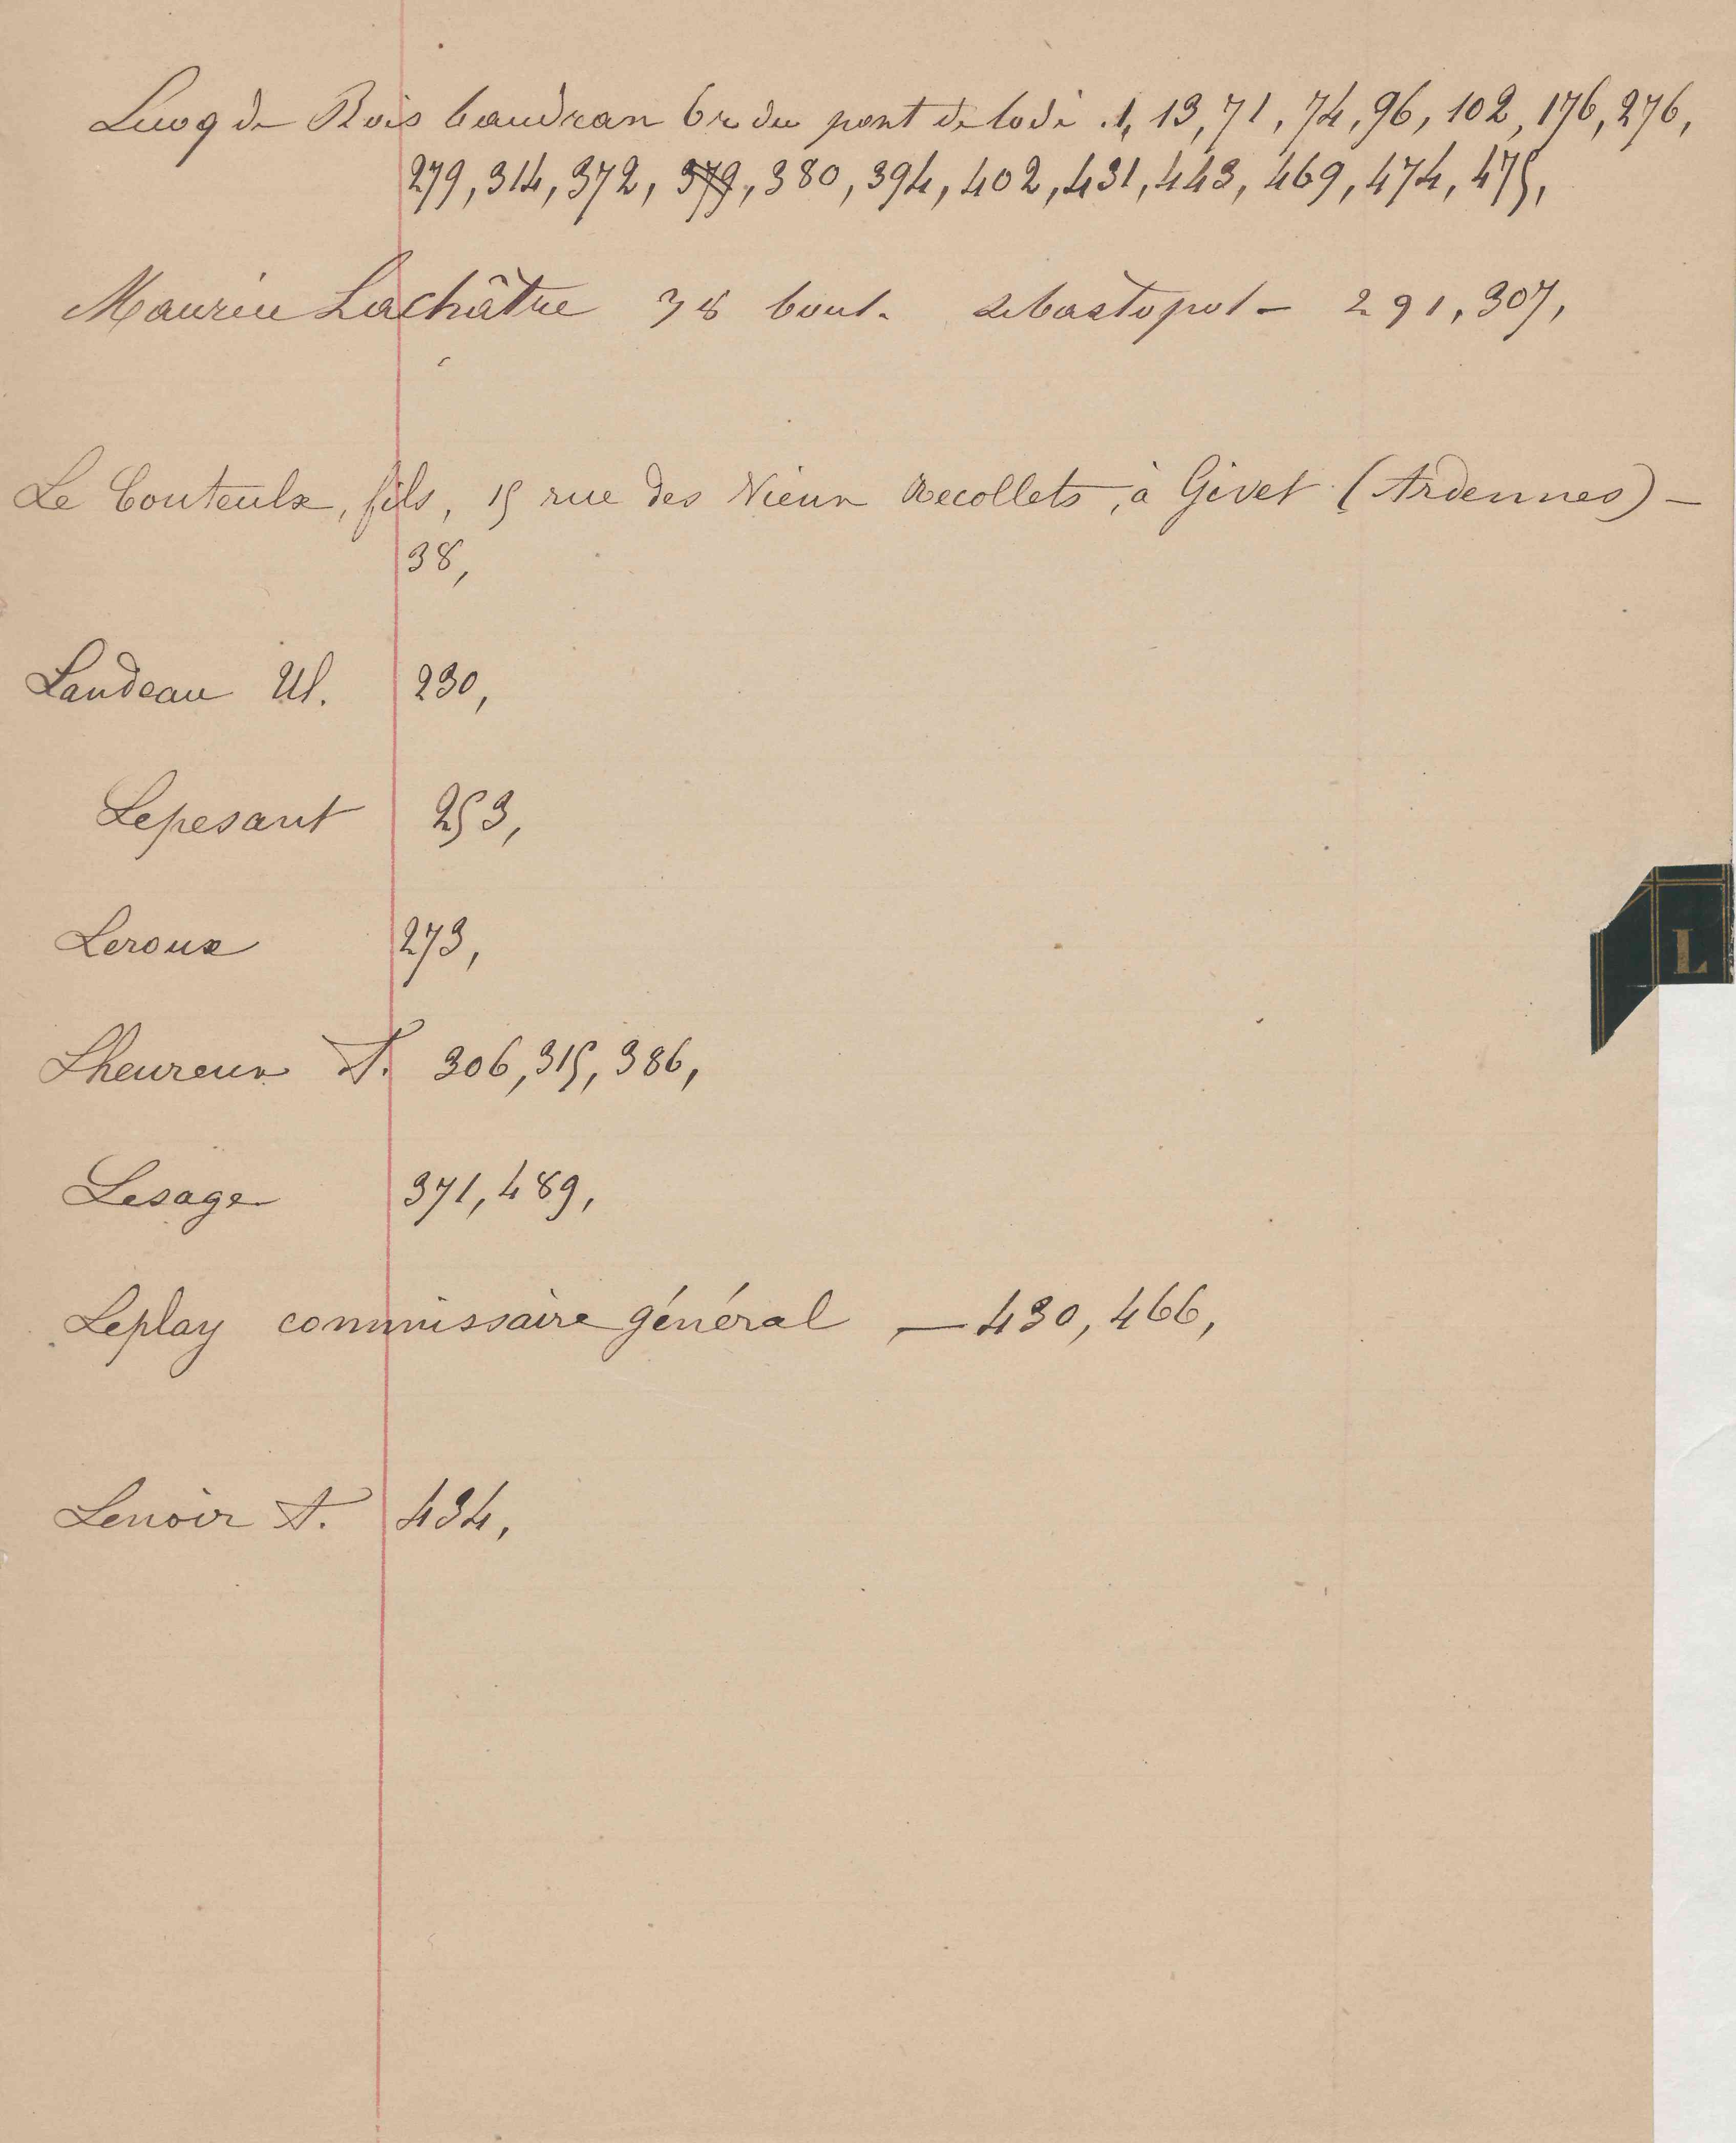 Lecoq de Bois baudran 6 r du pont de lodi . 1, 13, 71, 74, 96, 102, 176, 276,
279, 314, 372, 379, 380, 394, 402, 431, 443, 469, 474, 475,
Maurice Lachâtre 38 boul. sebastopol - 291, 307,
Le Couteulx, fils, 15 rue des Vieux Recollets, à Givet (Ardennes) -
38,
Landeau Ul. 230,
Lepesant 253,
Leroux 273,
Lheureux A. 306, 315, 386,
Lesage 371, 489,
Leplay commissaire général - 430, 466,
Lenoir A. 434,
L